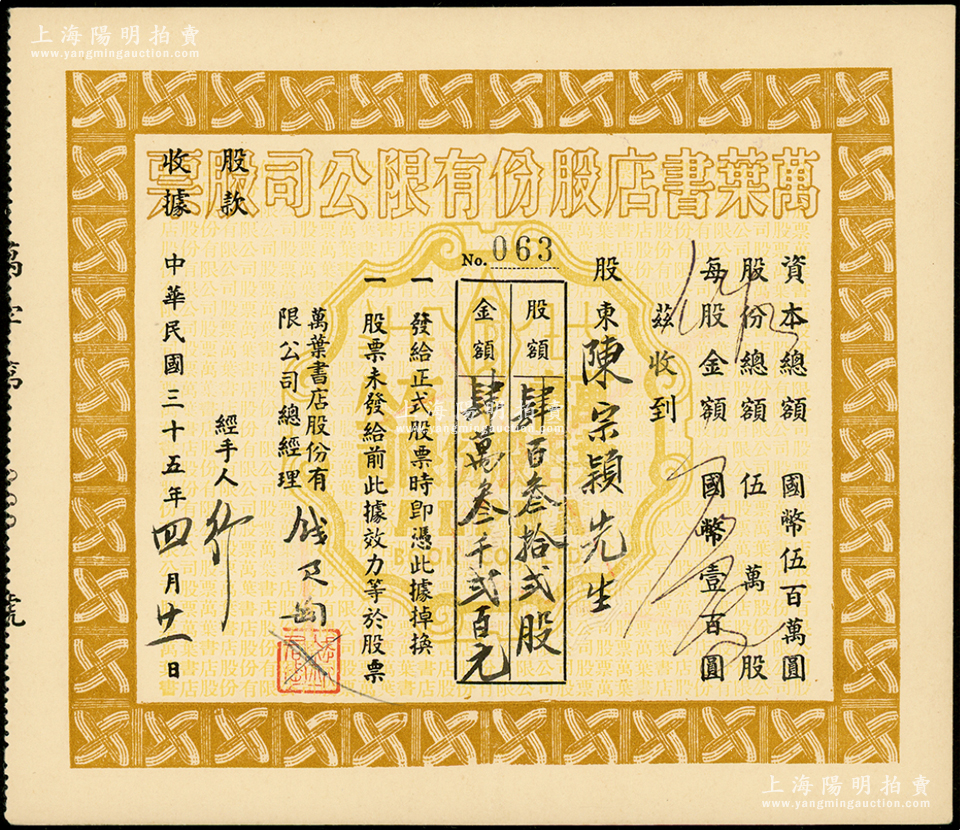 上海陽明拍賣
www.yangmingauction.com
萬葉書店股份有限公司股票
資本總額 國幣伍百萬圓
股份總額 伍萬股
每股金額 國幣壹百圓
茲收到
股東陳宗穎先生
No. 063
股額 肆百叁拾弍股
金額 肆萬叁千弍百元
一 發給正式股票時即憑此據掉換
一 股票未發給前此據效力等於股票
萬葉書店股份有
限公司總經理 錢君匋
經手人
股款
收據
中華民國三十五年四月廿一日
萬字第
號
上海陽明拍賣
www.yangmingauction.com
上海陽明拍賣
www.yangmingauction.com